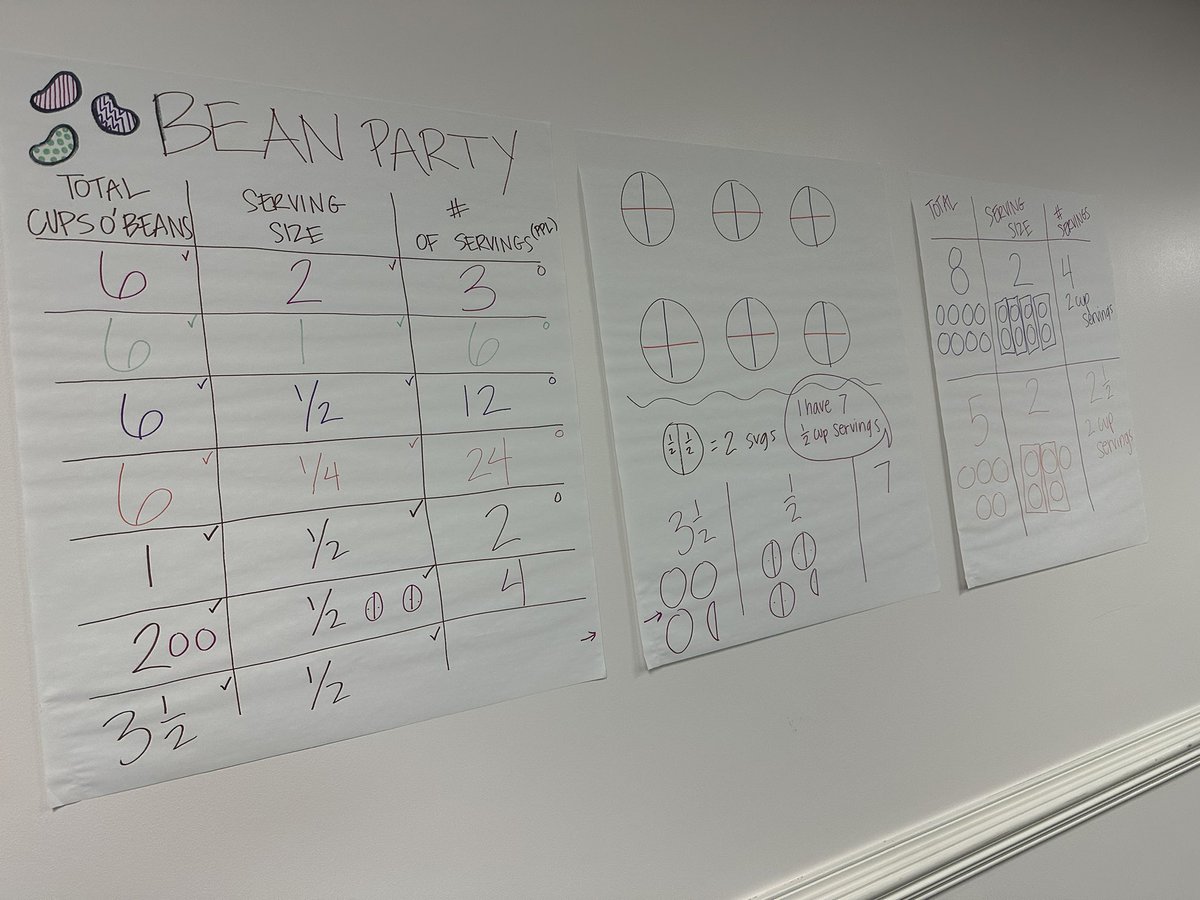 BEAN PARTY
TOTAL CUPS O'BEANS SERVING SIZE # OF SERVINGS (PPL)
6 2 3
6 1 6
6 1/2 12
6 1/4 24
1 1/2 2
2 1/2 4
3 1/2 1/2
1/2 1/2 = 2 svgs
I have 7
1/2 cup servings
3 1/2 1/2 7
TOTAL SERVING SIZE # SERVINGS
8 2 4
2 cup
servings
5 2 2 1/2
2 cup
servings